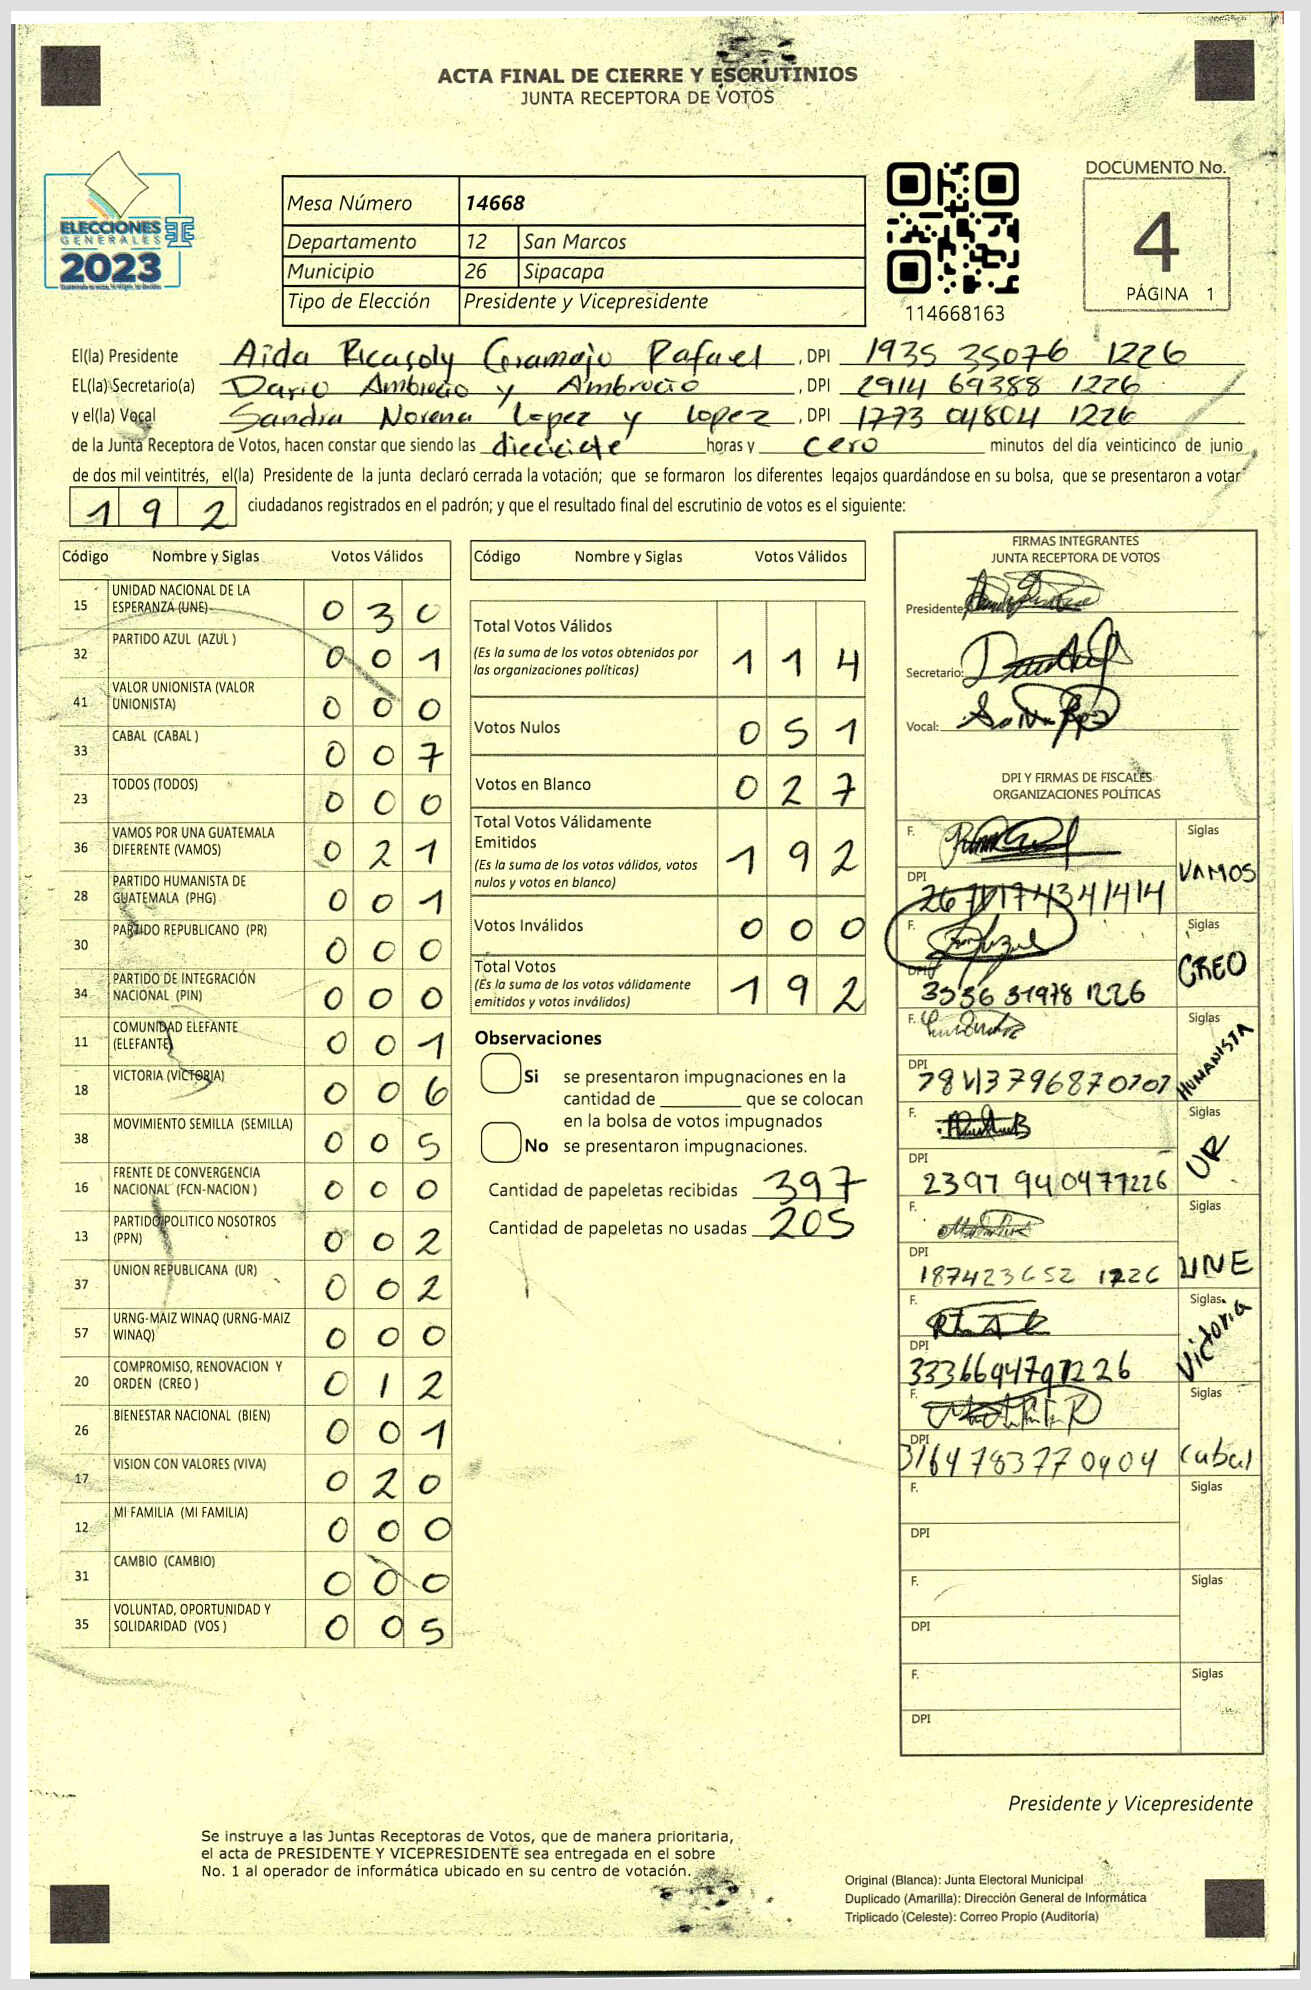 ACTA FINAL DE CIERRE Y ESCRUTINIOS
JUNTA RECEPTORA DE VOTOS
ELECCIONES
GENERALES
2023
Mesa Número 14668
Departamento 12 San Marcos
Municipio 26 Sipacapa
Tipo de Elección Presidente y Vicepresidente
114668163
DOCUMENTO No.
4
PÁGINA 1
El(la) Presidente Aida Ricasoly Gramajo Rafael , DPI 1935 35076 1226
EL(la) Secretario(a) Dario Ambrocio y Ambrocio , DPI 2914 69388 1226
y el(la) Vocal Sandra Norena Lopez y Lopez , DPI 1773 04804 1226
de la Junta Receptora de Votos, hacen constar que siendo las diecisiete horas y cero minutos del día veinticinco de junio
de dos mil veintitrés, el(la) Presidente de la junta declaró cerrada la votación; que se formaron los diferentes legajos guardándose en su bolsa, que se presentaron a votar
192 ciudadanos registrados en el padrón; y que el resultado final del escrutinio de votos es el siguiente:
Código Nombre y Siglas Votos Válidos
15 UNIDAD NACIONAL DE LA ESPERANZA (UNE) 0 3 0
32 PARTIDO AZUL (AZUL ) 0 0 1
41 VALOR UNIONISTA (VALOR UNIONISTA) 0 0 0
33 CABAL (CABAL ) 0 0 7
23 TODOS (TODOS) 0 0 0
36 VAMOS POR UNA GUATEMALA DIFERENTE (VAMOS) 0 2 1
28 PARTIDO HUMANISTA DE GUATEMALA (PHG) 0 0 1
30 PARTIDO REPUBLICANO (PR) 0 0 0
34 PARTIDO DE INTEGRACIÓN NACIONAL (PIN) 0 0 0
11 COMUNIDAD ELEFANTE (ELEFANTE) 0 0 1
18 VICTORIA (VICTORIA) 0 0 6
38 MOVIMIENTO SEMILLA (SEMILLA) 0 0 5
16 FRENTE DE CONVERGENCIA NACIONAL (FCN-NACION ) 0 0 0
13 PARTIDO POLITICO NOSOTROS (PPN) 0 0 2
37 UNION REPUBLICANA (UR) 0 0 2
57 URNG-MAIZ WINAQ (URNG-MAIZ WINAQ) 0 0 0
20 COMPROMISO, RENOVACION Y ORDEN (CREO ) 0 1 2
26 BIENESTAR NACIONAL (BIEN) 0 0 1
17 VISION CON VALORES (VIVA) 0 2 0
12 MI FAMILIA (MI FAMILIA) 0 0 0
31 CAMBIO (CAMBIO) 0 0 0
35 VOLUNTAD, OPORTUNIDAD Y SOLIDARIDAD (VOS ) 0 0 5
Código Nombre y Siglas Votos Válidos
Total Votos Válidos 1 1 4
(Es la suma de los votos obtenidos por
las organizaciones políticas)
Votos Nulos 0 5 1
Votos en Blanco 0 2 7
Total Votos Válidamente
Emitidos 1 9 2
(Es la suma de los votos válidos, votos
nulos y votos en blanco)
Votos Inválidos 0 0 0
Total Votos 1 9 2
(Es la suma de los votos válidamente
emitidos y votos inválidos)
Observaciones
Si se presentaron impugnaciones en la
cantidad de ________ que se colocan
en la bolsa de votos impugnados
No se presentaron impugnaciones.
Cantidad de papeletas recibidas 397
Cantidad de papeletas no usadas 205
FIRMAS INTEGRANTES
JUNTA RECEPTORA DE VOTOS
Presidente:
Secretario:
Vocal:
DPI Y FIRMAS DE FISCALES
ORGANIZACIONES POLÍTICAS
F. Siglas VAMOS
DPI
F. Siglas CREO
DPI 3536 31978 1226
F. Siglas HUMANISTA
DPI
F. Siglas UR
DPI 2397 94047 1226
F. Siglas UNE
DPI 187423652 1226
F. Siglas Victoria
DPI 3336694791226
F. Siglas Cabal
DPI 3164 78377 0904
F. Siglas
DPI
F. Siglas
DPI
F. Siglas
DPI
Presidente y Vicepresidente
Se instruye a las Juntas Receptoras de Votos, que de manera prioritaria,
el acta de PRESIDENTE Y VICEPRESIDENTE sea entregada en el sobre
No. 1 al operador de informática ubicado en su centro de votación.
Original (Blanca): Junta Electoral Municipal
Duplicado (Amarilla): Dirección General de Informática
Triplicado (Celeste): Correo Propio (Auditoría)